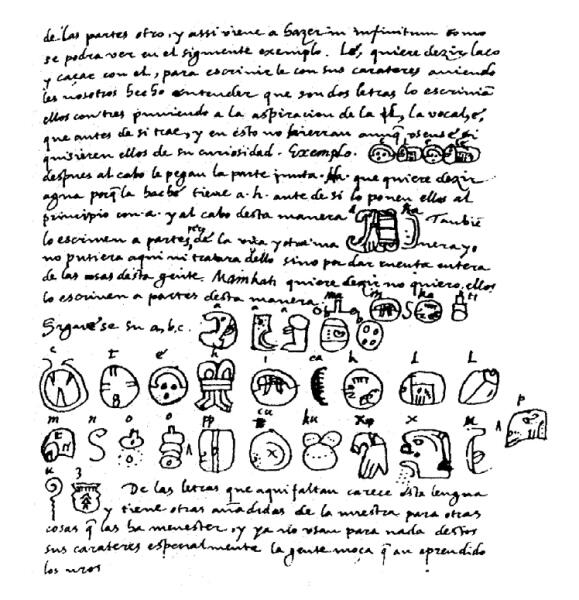 de las partes otro, y assi viene a hazer in infinitum como
se podra ver en el siguiente exemplo. Lé, quiere dezir laço
y caçar con el, para escrivirle con sus carateres aviendo
les nosotros hecho entender que son dos letras lo escrivian
ellos con tres puniendo a la aspiracion de la l, la vocal, é,
que antes de si trae, y en esto no hierran aunq usense si
quisieren ellos de su curiosidad. Exemplo.
despues al cabo le pegan la parte junta. Ha. que quiere dezir
agua porq la hache tiene a. h. ante de si lo ponen ellos al
principio con a. y al cabo desta manera a ha Tanbie
lo escriven a partes, de la una y otra ma nera yo
no pusiera aqui ni tratara dello sino por dar cuenta entera
de las cosas desta gente. Mainkati quiere dezir no quiero, ellos
lo escriven a partes desta manera: ma i n ka ti
Siguese su a, b, c. a a a b b
c t é h i ca k l l
m n o o pp cu ku x x u p
u z De las letras que aqui faltan carece esta lengua
y tiene otras añadidas de la nuestra para otras
cosas q las ha menester, y ya no usan para nada destos
sus carateres especialmente la gente moça q an aprendido
los nros